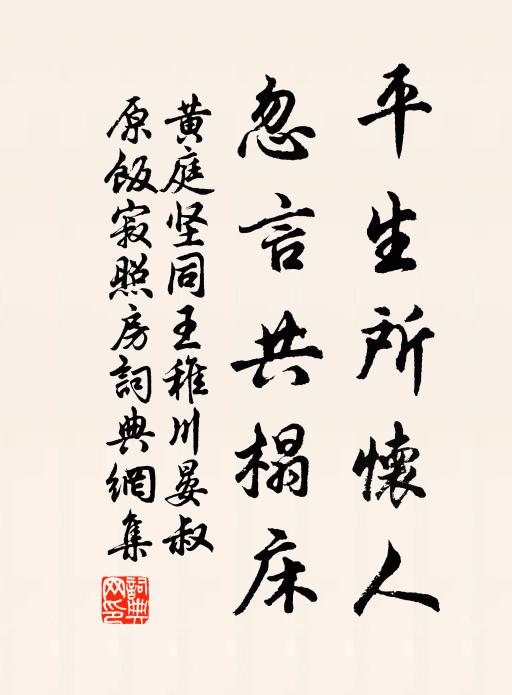 平生所懷人
忽言共榻床
黄庭坚同王稚川晏叔
原飯寂照房詞典網集
詞典网印